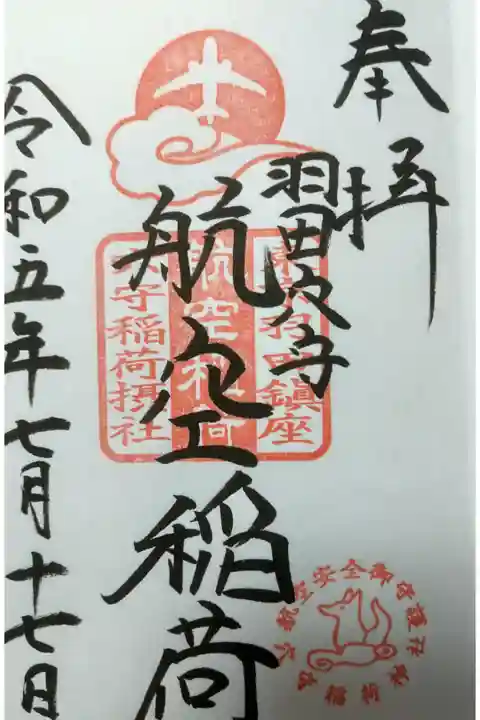 奉拝
羽田穴守
航空稲荷
令和五年七月十七日
東京羽田鎮座
航空稲荷
穴守稲荷摂社